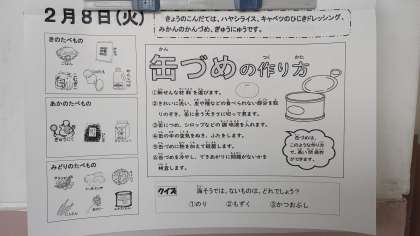 2月8日(火)
きょうのこんだては、ハヤシライス、キャベツのひじきドレッシング、
みかんのかんづめ、ぎゅうにゅうです。
きのたべもの
あかのたべもの
みどりのたべもの
かん つく かた
缶づめの作り方
①新せんな材料を選びます。
②きれいに洗い、皮や種などの食べられない部分を取
りのぞき、缶に合う大きさに切って煮ます。
③缶につめ、シロップなどの調味液を入れます。
④缶の中の空気をぬき、ふたをします。
⑤缶づめに熱を加えて殺菌します。
⑥缶づめを冷やし、できあがりに問題がないかを
検査します。
缶づめは、
このような作り方
で、長い間保存
ができます。
クイズ 海そうでは、ないものは、どれでしょう?
①のり ②もずく ③かつおぶし